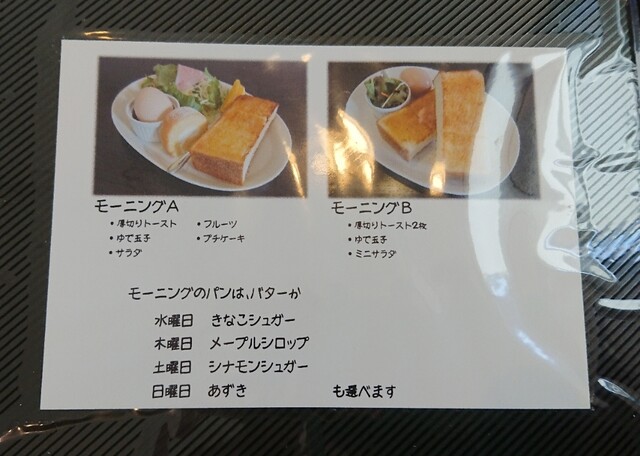 モーニングA
・厚切りトースト ・フルーツ
・ゆで玉子 ・プチケーキ
・サラダ
モーニングB
・厚切りトースト2枚
・ゆで玉子
・ミニサラダ
モーニングのパンは、バターか
水曜日 きなこシュガー
木曜日 メープルシロップ
土曜日 シナモンシュガー
日曜日 あずき も選べます